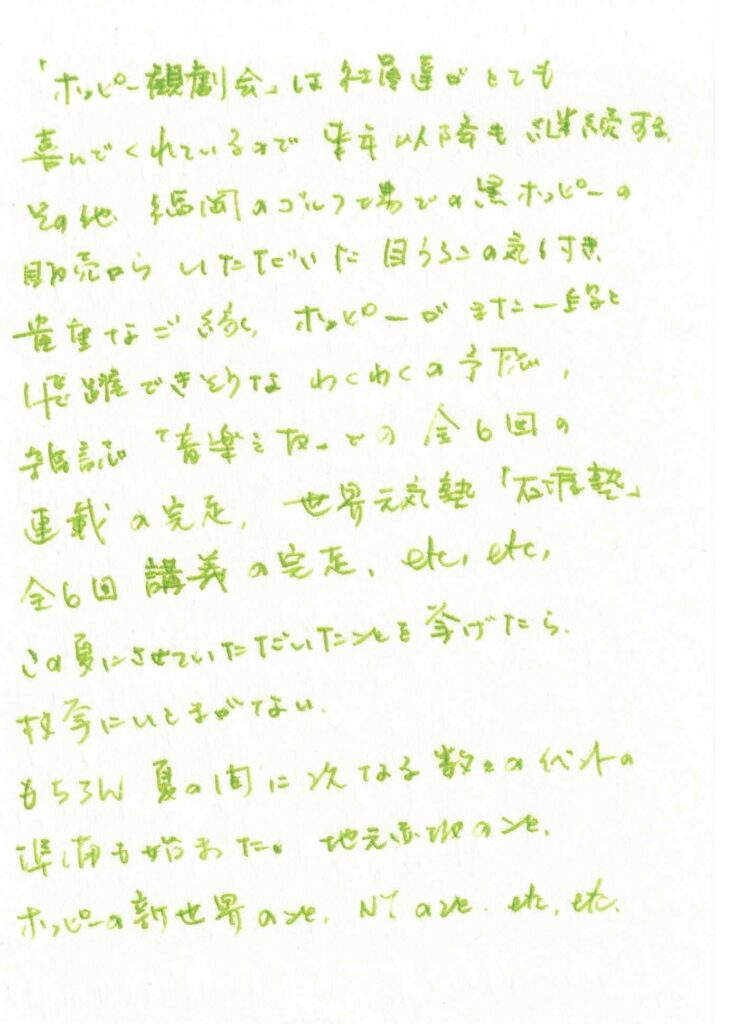 「ホッピー観劇会」は社員達がとても
喜んでくれているので来年以降も継続する。
その他、福岡のゴルフ場での黒ホッピーの
販売からいただいた目うろこの気付き、
貴重なご縁、ホッピーがまた一段と
飛躍できそうなわくわくの予感、
雑誌「音楽之友」での全6回の
連載の完走、世界元気塾「石渡塾」
全6回講義の完走、etc, etc,
この夏にさせていただいたことを挙げたら、
枚挙にいとまがない。
もちろん夏の間に次なる数々のイベントの
準備も始まった。地元赤坂のこと、
ホッピーの新世界のこと、NYのこと、etc, etc.